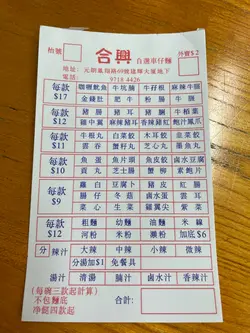 枱號 合興 自選車仔麵 外賣$2
地址:元朗鳳翔路69號達輝大廈地下
電話: 9718 4426
每款 $17 咖喱魷魚 牛坑腩 牛孖根 麻辣牛腩
金錢肚 肥牛 粉腸 牛腩
每款 $12 豬膝 豬耳 豬腩 牛柏葉
雞中翼 麻辣豬耳 香辣豬紅 鮑汁鳳爪
每款 $11 牛根丸 白菜餃 木耳 韮菜餃
雲吞 香辣雞 炸菜肉絲
每款 $10 魚蛋 魚片頭 魚片 鹵水豆腐
貢丸 芝士腸 蟹柳 素鮑片
每款 $9 蘿白 豆卜 豬皮 紅腸
腸仔 冬菇 鹵水蛋 雲耳
生菜 豬紅 雞翼尖 紫菜
每款 $12 粗麵 幼麵 油麵 米線
河粉 米粉 瀨粉 加底$6
分 辣汁 大辣 中辣 小辣 微辣
分湯加$1 免餐具
湯汁 清湯 腩汁 鹵水汁 香辣汁
(每碗三款起計算)
不包麵底
淨餸四款起
合計: